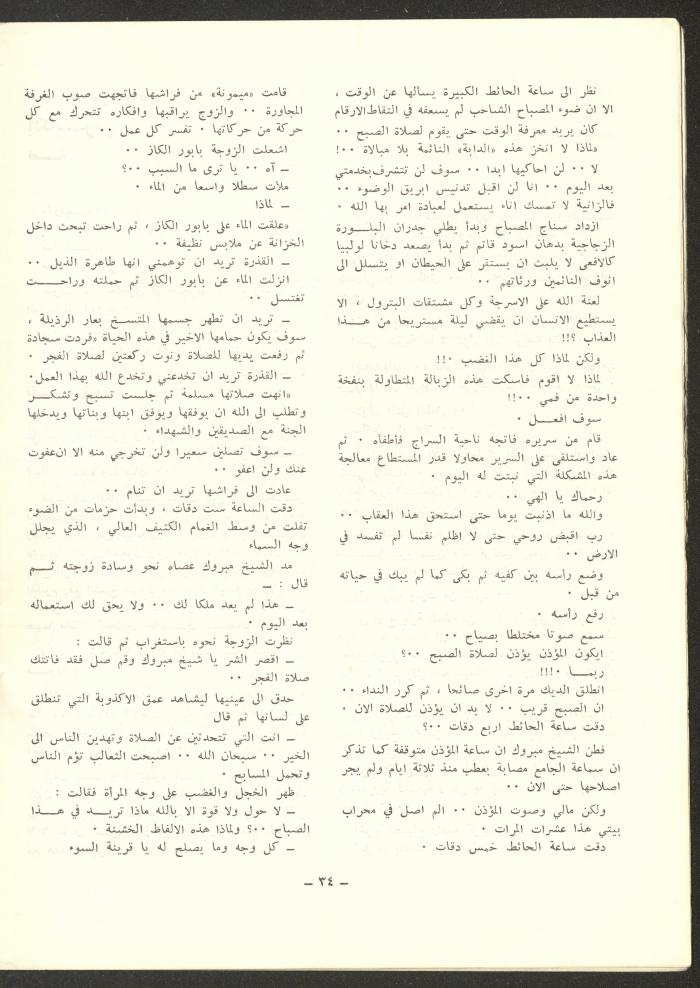 نظر الى ساعة الحائط الكبيرة يسألها عن الوقت ،
الا ان ضوء المصباح الشاحب لم يسعفه في التقاط الارقام
كان يريد معرفة الوقت حتى يقوم لصلاة الصبح ٠٠
«لماذا لا انخز هذه «الدابة» النائمة بلا مبالاة ٠٠!
لا ٠٠ لن احاكيها ابدا ٠٠ سوف لن تتشرف بخدمتي
بعد اليوم ٠٠ انا لن اقبل تدنيس ابريق الوضوء ٠٠
فالزانية لا تمسك اناء يستعمل لعبادة امر بها الله ٠
ازداد سناج المصباح وبدأ يطلي جدران البلـــورة
الزجاجية بدهان اسود قاتم ثم بدأ يصعد دخانا لولبيا
كالافعى لا يلبث ان يستقر على الحيطان او يتسلل الى
انوف النائمين ورئاتهم ٠٠
لعنة الله على الاسرجة وكل مشتقات البترول ، الا
يستطيع الانسان ان يقضي ليلة مستريحا من هـــذا
العذاب ؟!!
ولكن لماذا كل هذا الغضب ٠!!
لماذا لا اقوم فاسكت هذه الزبالة المتطاولة بنفخة
واحدة من فمي ٠٠!!
سوف افعـــل ٠
قام من سريره فاتجه ناحية السراج فأطفأه ٠ ثم
عاد واستلقى على السرير محاولا قدر المستطاع معالجة
هذه المشكلة التي نبتت له اليوم ٠
رحماك يا الهي ٠٠
والله ما اذنبت يوما حتى استحق هذا العقاب ٠٠
رب اقبض روحي حتى لا اظلم نفسا لم تفسد في
الارض ٠٠
وضع رأسه بين كفيه ثم بكى كما لم يبك في حياته
من قبل ٠
رفع رأسه ٠
سمع صوتا مختلطا بصياح ٠٠
ايكون المؤذن يؤذن لصلاة الصبح ٠٠؟
ربمـــا ٠!!!
انطلق الديك مرة اخرى صائحا ، ثم كرر النداء ٠٠
ان الصبح قريب ٠٠ لا بد ان يؤذن للصلاة الان ٠
دقت ساعة الحائط اربع دقات ٠٠؟
فطن الشيخ مبروك ان ساعة المؤذن متوقفة كما تذكر
ان سماعة الجامع مصابة بعطب منذ ثلاثة ايام ولم يجر
اصلاحها حتى الان ٠٠
ولكن مالي وصوت المؤذن ٠٠ الم اصل في محراب
بيتي هذا عشرات المرات ٠
دقت ساعة الحائط خمس دقات ٠
قامت «ميمونة» من فراشها فاتجهت صوب الغرفة
المجاورة ٠٠ والزوج يراقبها وافكاره تتحرك مع كل
حركة من حركاتها ٠ تفسر كل عمل ٠٠
اشعلت الزوجة بابور الكاز ٠٠
ــ آه ٠٠ يا ترى ما السبب ٠٠؟
ملأت سطلا واسعا من الماء ٠
ــ لماذا
«علقت الماء على بابور الكاز ، ثم راحت تبحث داخل
الخزانة عن ملابس نظيفة ٠٠
ــ القذرة تريد ان توهمني انها طاهرة الذيل ٠٠
انزلت الماء عن بابور الكاز ثم حملته وراحـــت
تغتسل ٠٠
ــ تريد ان تطهر جسمها المتسـخ بعار الرذيلة ،
سوف يكون حمامها الاخير في هذه الحياة «فردت سجادة
ثم رفعت يديها للصلاة ونوت ركعتين لصلاة الفجر ٠
ــ القذرة تريد ان تخدعني وتخدع الله بهذا العمل٠
«انهت صلاتها مسلمة ثم جلست تسبح وتشكــر
وتطلب الى الله ان يوفقها ويوفق ابنها وبناتها ويدخلها
الجنة مع الصديقين والشهداء ٠
ــ سوف تصلين سعيرا ولن تخرجي منه الا ان عفوت
عنك ولن اعفو ٠٠
عادت الى فراشها تريد ان تنام ٠٠
دقت الساعة ست دقات ، وبدأت حزمات من الضوء
تفلت من وسط الغمام الكثيف العالي ، الذي يجلل
وجه السماء
مد الشيخ مبروك عصاه نحو وسادة زوجته ثـــم
قال : ــ
ــ هذا لم يعد ملكا لك ٠٠ ولا يحق لك استعماله
بعد اليوم ٠
نظرت الزوجة نحوه باستغراب ثم قالت :
ــ اقصر الشر يا شيخ مبروك وقم صل فقد فاتتك
صلاة الفجر ٠٠
حدق الى عينيها ليشاهد عمق الاكذوبة التي تنطلق
على لسانها ثم قال
ــ انت التي تتحدثين عن الصلاة وتهدين الناس الى
الخير ٠٠ سبحان الله ٠٠ اصبحت الثعالب تؤم الناس
وتحمل المسابح ٠
ظهر الخجل والغضب على وجه المرأة فقالت :
ــ لا حول ولا قوة الا بالله ماذا تريـــد في هـــذا
الصباح ٠٠؟ ولماذا هذه الالفاظ الخشنة ٠
ــ كل وجه وما يصلح له يا قرينة السوء
ــ ٣٤ ــ